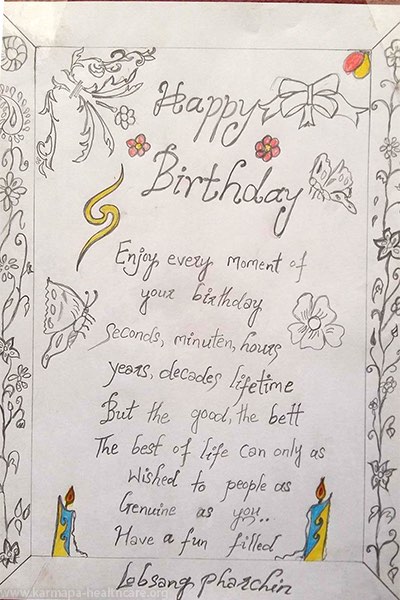 Happy
Birthday
Enjoy every moment of
your birthday
seconds, minuten, hours
years, decades lifetime
But the good, the bett
The best of life can only as
Wished to people as
Genuine as you..
Have a fun filled
Lobsang pharchin
www.karmapa-healthcare.org